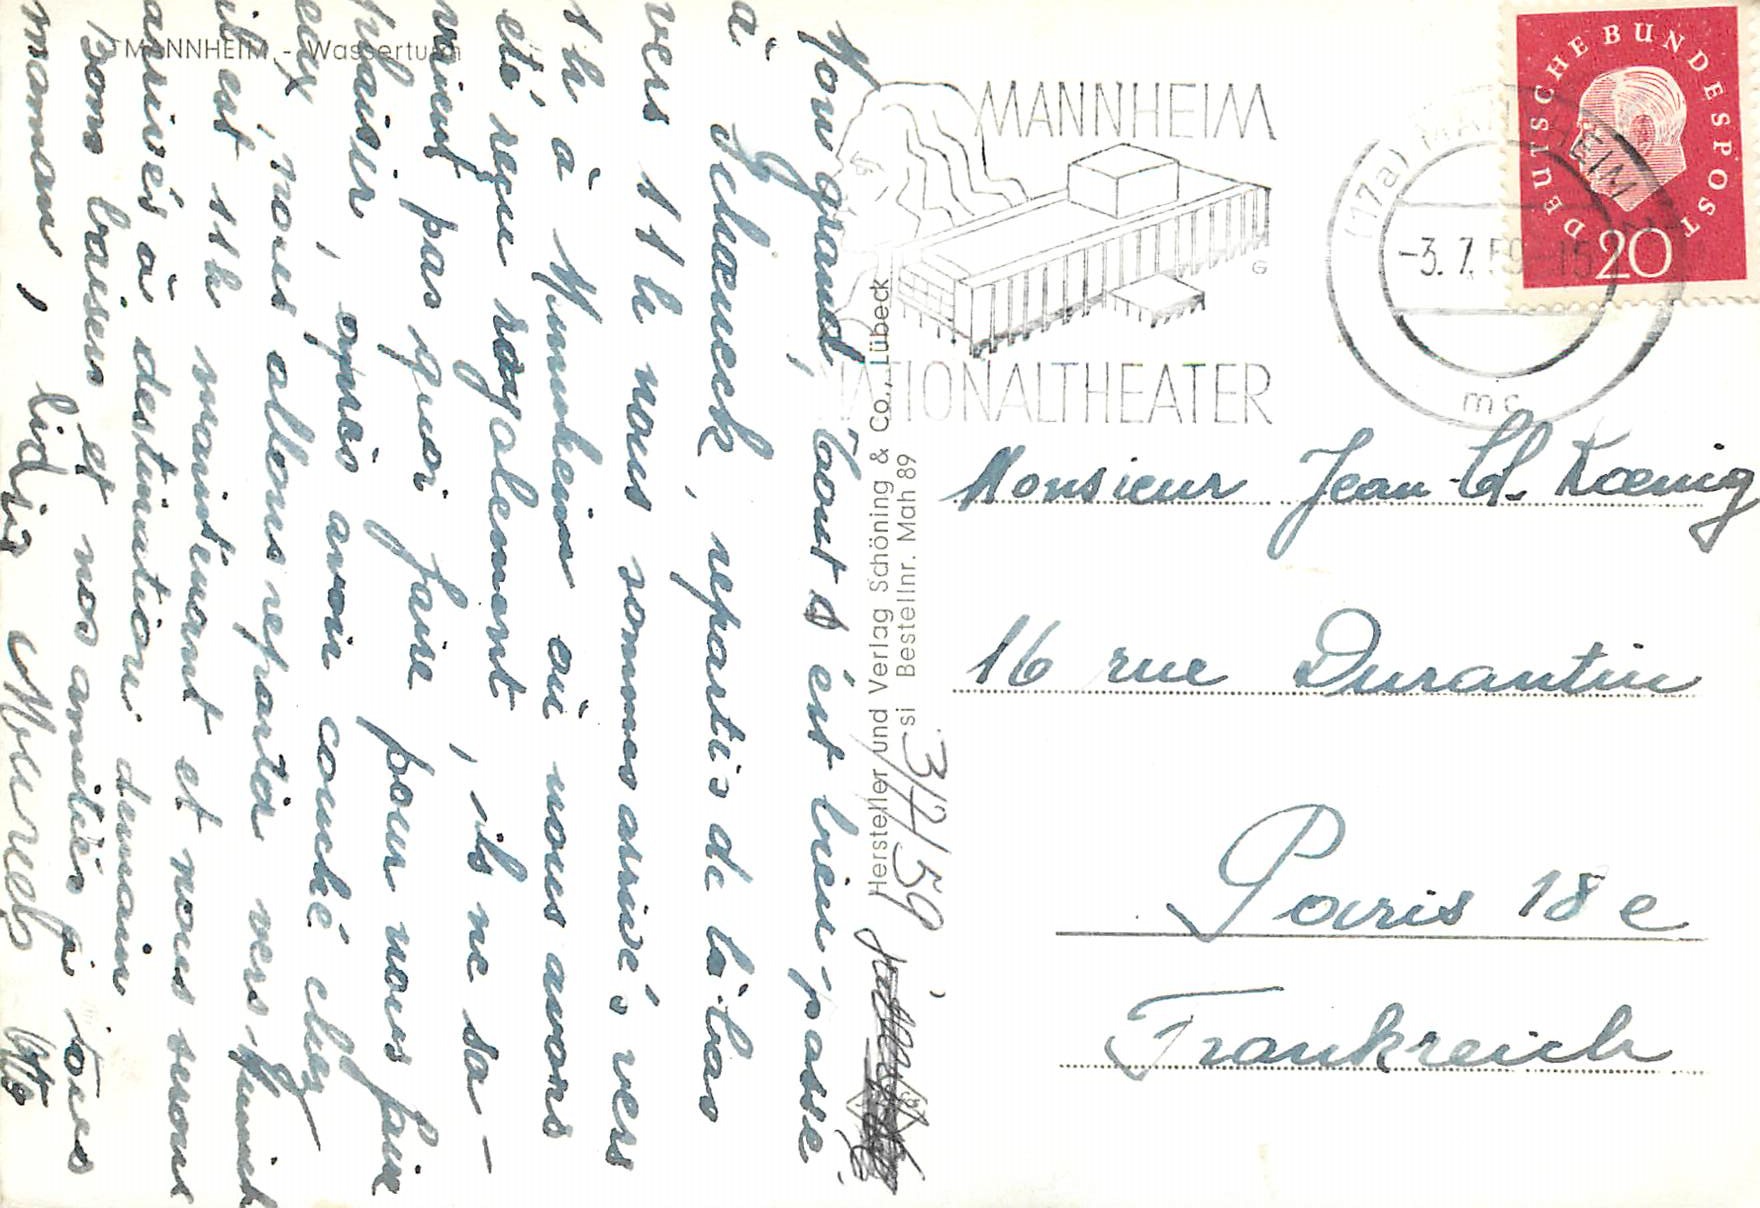 MANNHEIM - Wasserturm
MANNHEIM
NATIONALTHEATER
G
(17a) MANNHEIM
-3.7.59-15
mc
DEUTSCHE BUNDESPOST
20
Hersteller und Verlag Schöning & Co., Lübeck
si Bestellnr. Mah 89
3/7/59
Monsieur Jean-Cl. Kœnig
16 rue Durantin
Paris 18 e
Frankreich
Mon grand, Tout s'est bien passé
à repartis de là-bas
vers 11 h nous sommes arrivés vers
1h à où nous avons
été reçu royalement, ils ne sa-
vaient pas quoi faire pour nous faire
plaisir, après avoir couché chez
eux, nous allons repartir vers Munich
il est 11h maintenant et nous serons
arrivés à destination demain
Bons baisers et nos amitiés à tous
maman, Lidia